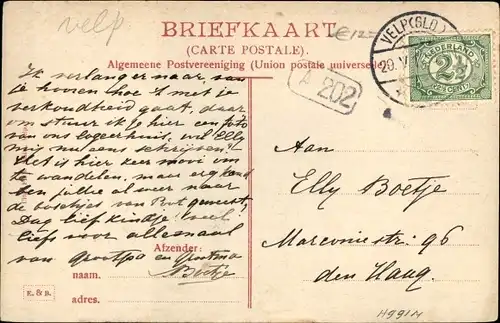 velp
BRIEFKAART
(CARTE POSTALE).
Algemeene Postvereeniging (Union postale universelle)
€12
VELP (GLD.)
29.
NEDERLAND
2½
CENT
A 202
Ik verlang er naar, van
je te hooren hoe 't met je
verkoudheid gaat, daar
om stuur ik je hier een foto
van ons logeerhuis, wil Elly
mij nu eens schrijven?
Het is hier zeer mooi om
te wandelen, maar erg kou
ben jullie al weer naar
de boschjes van Poot geweest,
Dag lief kindje! veel
liefs voor allemaal
van Grootpa en Grootma
Boetje
Afzender:
naam.
adres.
E. & B.
Aan
Elly Boetje
Marconiestr. 96
den Haag.
H991N